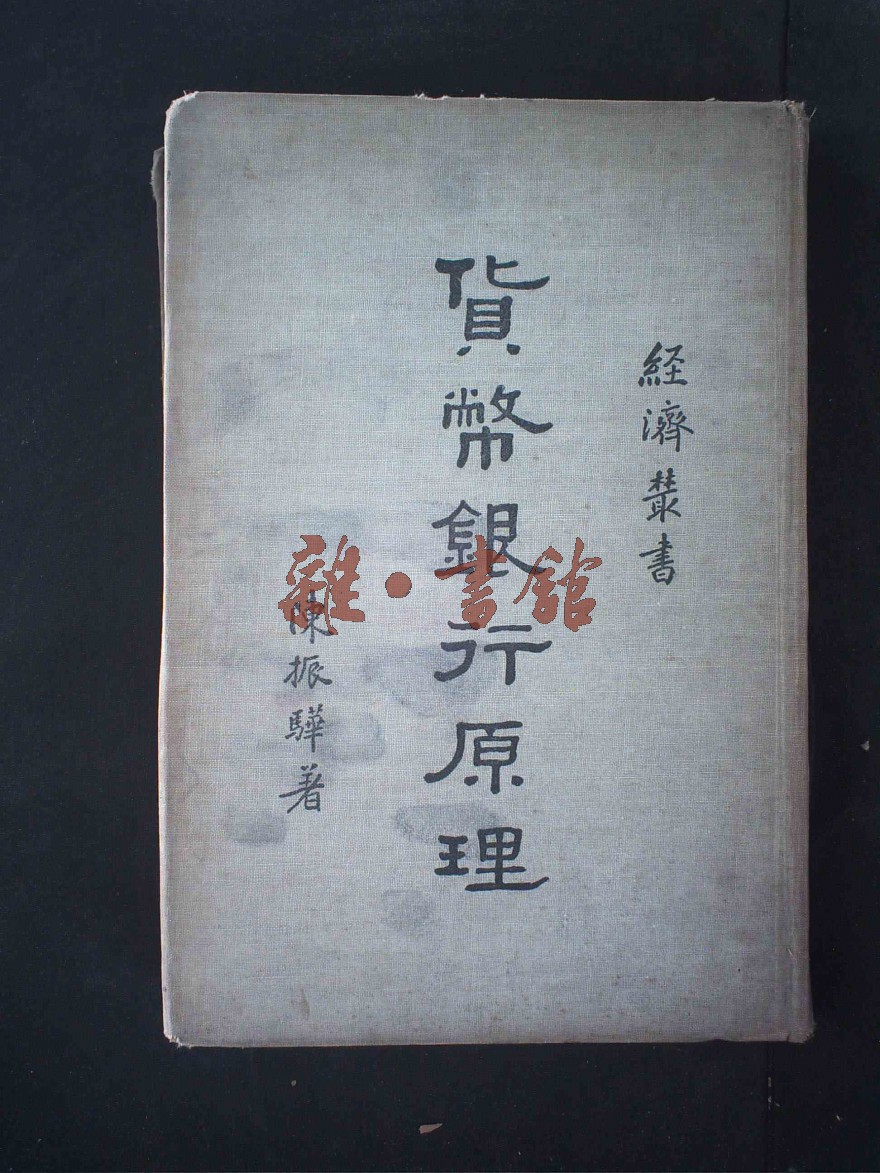 経濟叢書
貨幣銀行原理
陳振驊著
雜·書館